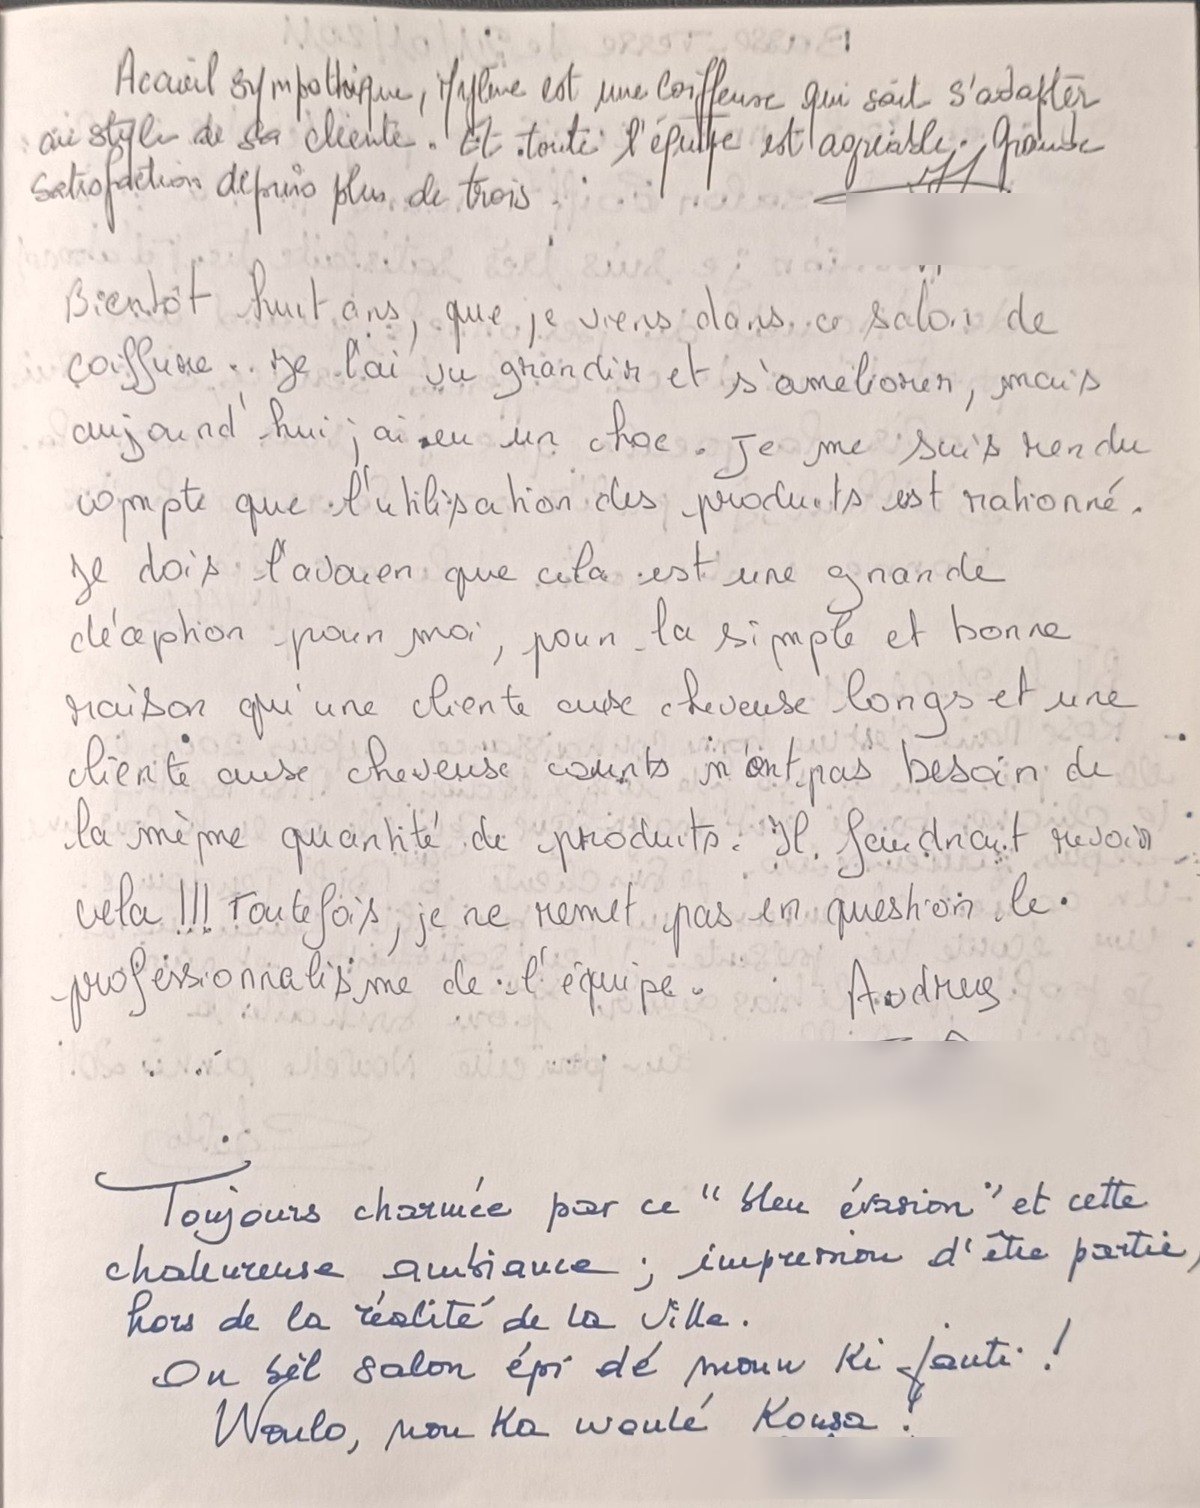 Acaieil sympathique, Mylène est une coiffeuse qui sait s'adapter
au style de sa cliente. Et toute l'équipe est agréable. Grande
satisfaction depuis plus de trois.
Bientôt huit ans, que je viens dans ce salon de
coiffure.. Je l'ai vu grandir et s'améliorer, mais
aujourd'hui j'ai eu un choc. Je me suis rendu
compte que l'utilisation des produits est rationné.
Je dois l'avouer que cela est une grande
déception pour moi, pour la simple et bonne
raison qu'une cliente ause cheveuse longs et une
cliente ause cheveuse courts n'ont pas besoin de
la même quantité de produits. Il faudrait revoir
cela !!! Toutefois, je ne remet pas en question le
professionnalisme de l'équipe.
Audrey
Toujours charmée par ce "bleu évasion" et cette
chaleureuse ambiance ; impression d'être partie,
hors de la réalité de la ville.
On bèl salon épi dé moun ki janti !
Woulo, nou ka woulé Konsa !